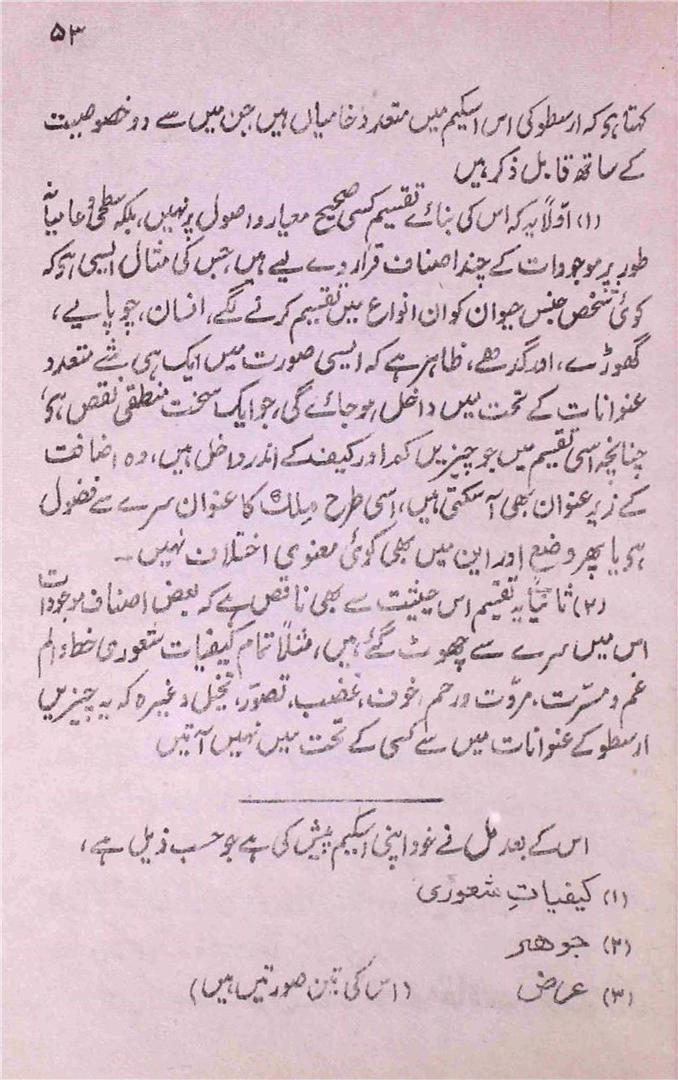 ۵۳
کہتا ہو کہ ارسطو کی اس اسکیم میں متعدد خامیاں ہیں جن میں سے دو خصوصیت
کے ساتھ قابل ذکر ہیں
(۱) اوّلاً یہ کہ اس کی بنائے تقسیم کسی صحیح معیار و اصول پر نہیں، بلکہ سطحی و عامیانہ
طور پر موجودات کے چند اصناف قرار دے لیے ہیں جس کی مثال ایسی ہو کہ
کوئی شخص جنس حیوان کو ان انواع میں تقسیم کرنے لگے، انسان، چوپایے،
گھوڑے، اور گدھے، ظاہر ہے کہ ایسی صورت میں ایک ہی شے متعدد
عنوانات کے تحت میں داخل ہو جائے گی، جو ایک سخت منطقی نقص ہو،
چنانچہ اسی تقسیم میں جو چیزیں کم اور کیف کے اندر داخل ہیں، وہ اضافت
کے زیر عنوان بھی آسکتی ہیں، اسی طرح مِلک کا عنوان سرے سے فضول
ہو یا پھر وضع اور این میں بھی کوئی معنوی اختلاف نہیں۔
(۲) ثانیاً یہ تقسیم اس حیثیت سے بھی ناقص ہے کہ بعض اصناف موجودات
اس میں سرے سے چھوٹ گئے ہیں، مثلاً تمام کیفیات شعوری حظ و الم
غم و مسرت، مروّت و رحم، خوف، غضب، تصوّر، تخیل وغیرہ کہ یہ چیزیں
ارسطو کے عنوانات میں سے کسی کے تحت میں نہیں آتیں
اس کے بعد مل نے خود اپنی اسکیم پیش کی ہے جو حسب ذیل ہے،
(۱) کیفیاتِ شعوری
(۲) جوھر
(۳) عرض (اس کی تین صورتیں ہیں)